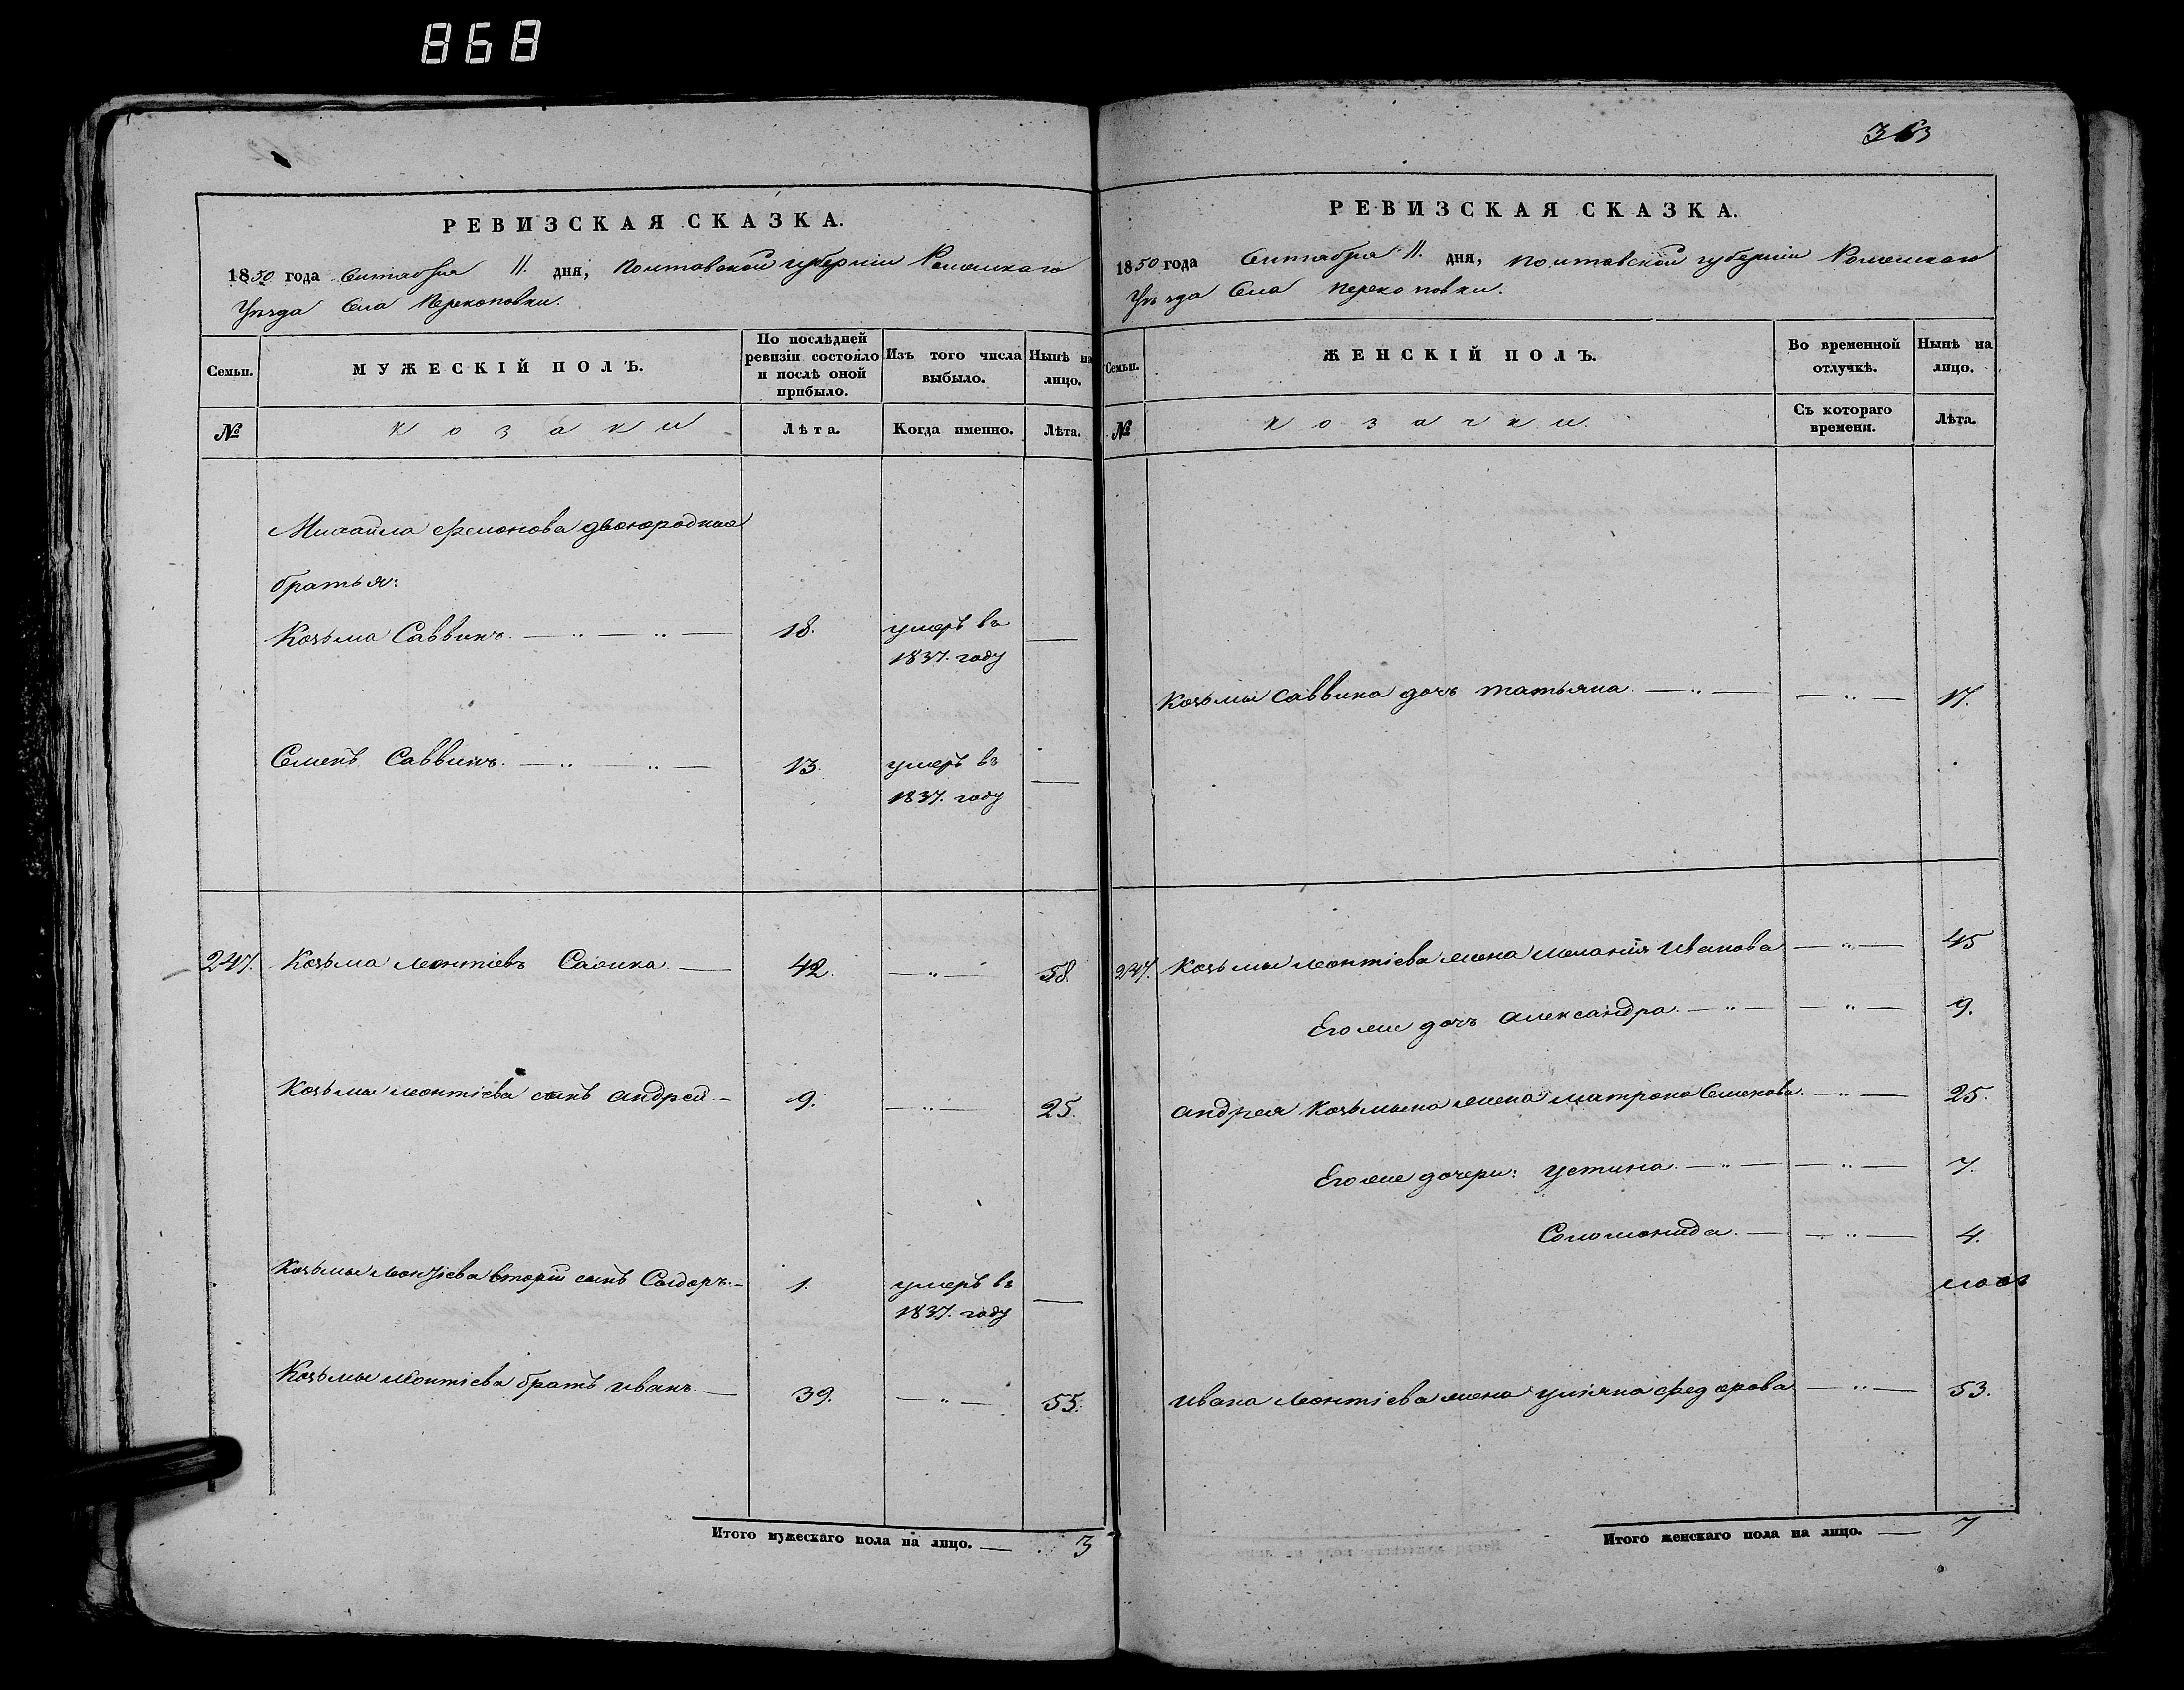 868
РЕВИЗСКАЯ СКАЗКА.
1850 года Сентября 11. дня, Полтавской губерніи Роменскаго
Уѣзда Села Перекоповки.
Семьи.
МУЖЕСКІЙ ПОЛЪ.
По послѣдней ревизіи состояло и послѣ оной прибыло.
Изъ того числа выбыло.
Нынѣ на лицо.
№
козаки
Лѣта.
Когда именно.
Лѣта.
Михайла Филонова двоюродные
братья:
Козьма Саввинъ. 18. умеръ въ
1837. году
Семенъ Саввинъ. 13. умеръ въ
1837. году
247. Козьма Леонтіевъ 42. 58.
Козьмы Леонтіева сынъ Андрей. 9. 25.
Козьмы Леонтіева вторый сынъ Сыдоръ. 1. умеръ въ
1837. году
Козьмы Леонтіева братъ Иванъ. 39. 55.
Итого мужескаго пола на лицо. 3
РЕВИЗСКАЯ СКАЗКА.
1850 года Сентября 11. дня, Полтавской губерніи Роменскаго
Уѣзда Села Перекоповки.
Семьи.
ЖЕНСКІЙ ПОЛЪ.
Во временной отлучкѣ.
Нынѣ на лицо.
№
козачки.
Съ котораго времени.
Лѣта.
Козьмы Саввина дочь Татьяна. 17.
247. Козьмы Леонтіева жена Меланія Иванова 45
Его же дочь Александра. 9.
Андрея Козьмына жена Матрона Семенова. 25.
Его же дочери: Устина. 7.
Соломонида. 4.
Ивана Леонтіева жена Уліяна Федорова 53.
Итого женскаго пола на лицо. 7